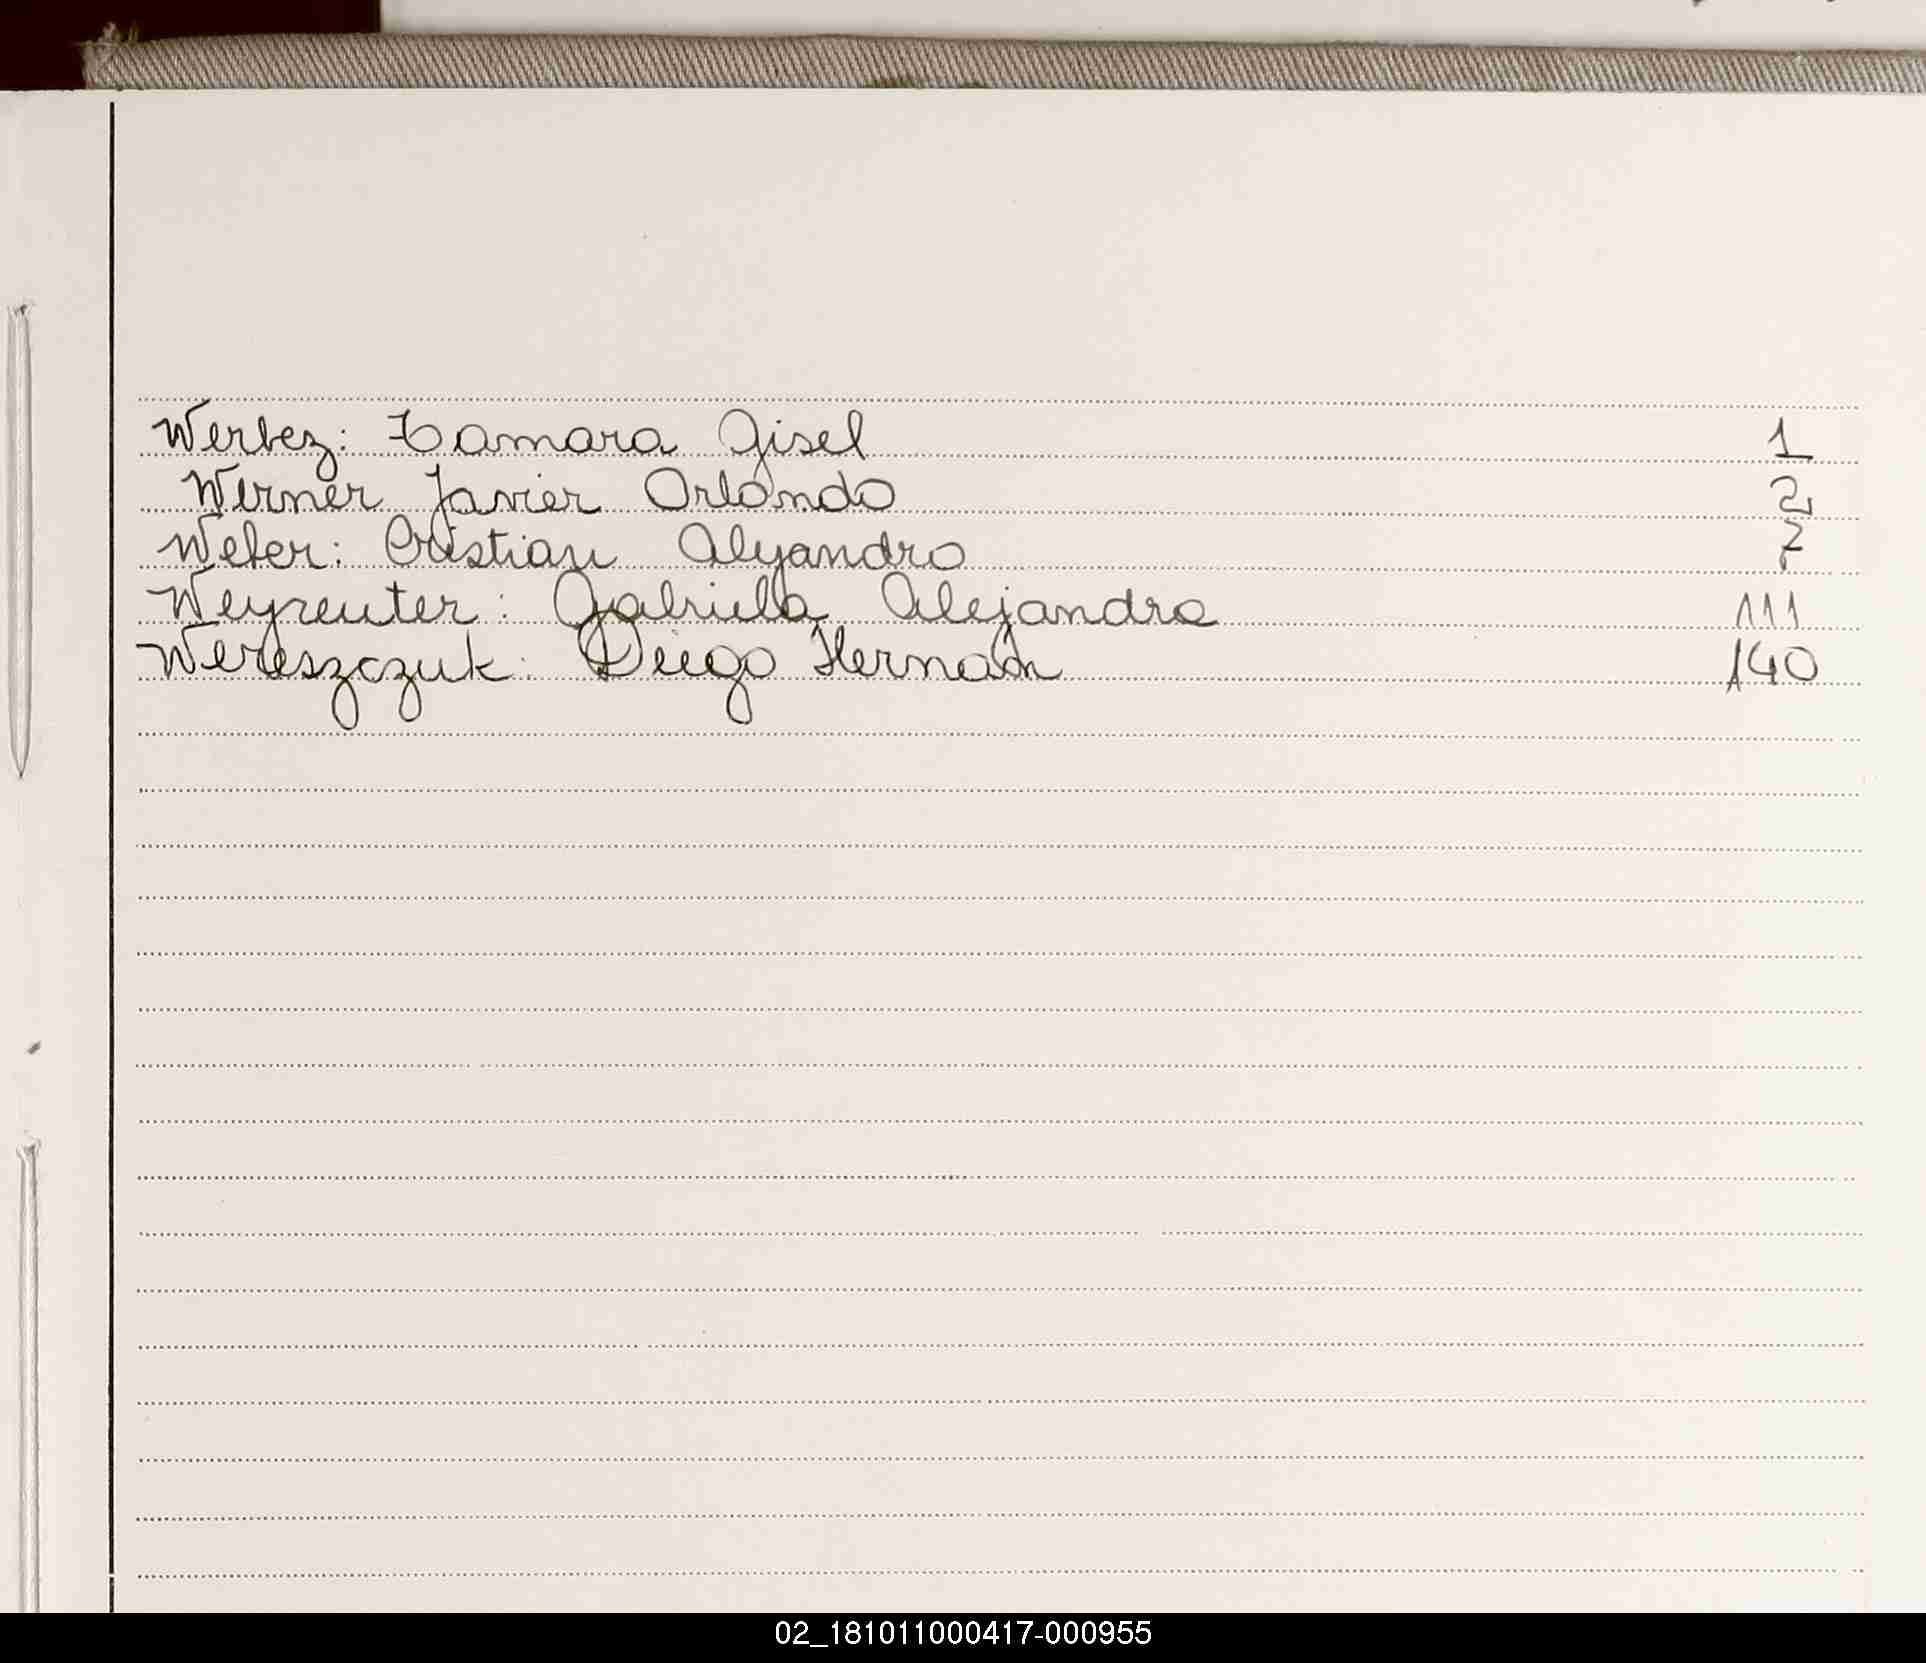 Werbez: Tamara Gisel 1
Werner Javier Orlando 2
Weber: Cristian Alejandro 7
Weyreuter: Gabriela Alejandra 111
Wereszczuk: Diego Hernán 140
02_181011000417-000955